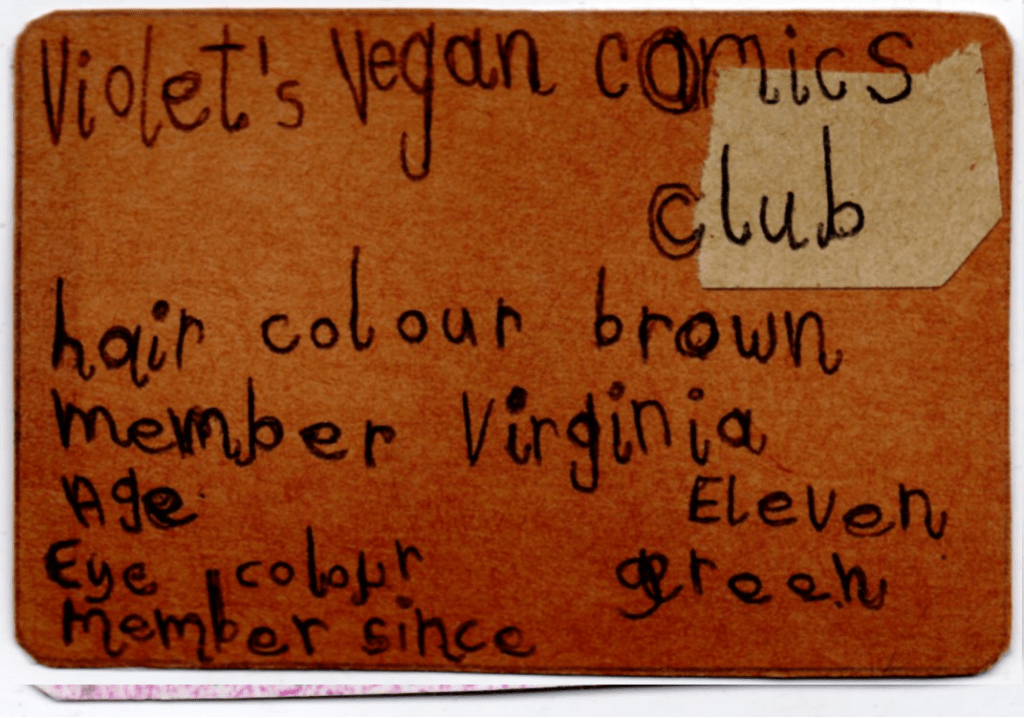 Violet's Vegan comics
club
hair colour brown
member Virginia
Age Eleven
Eye colour green
member since